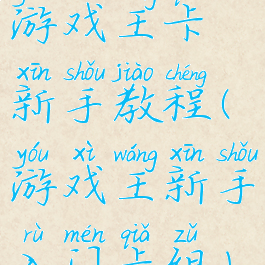 游戏王卡
xīn shǒu jiào chéng
新手教程(
yóu xì wáng xīn shǒu
游戏王新手
rù mén qiǎ zǔ
入门卡组)